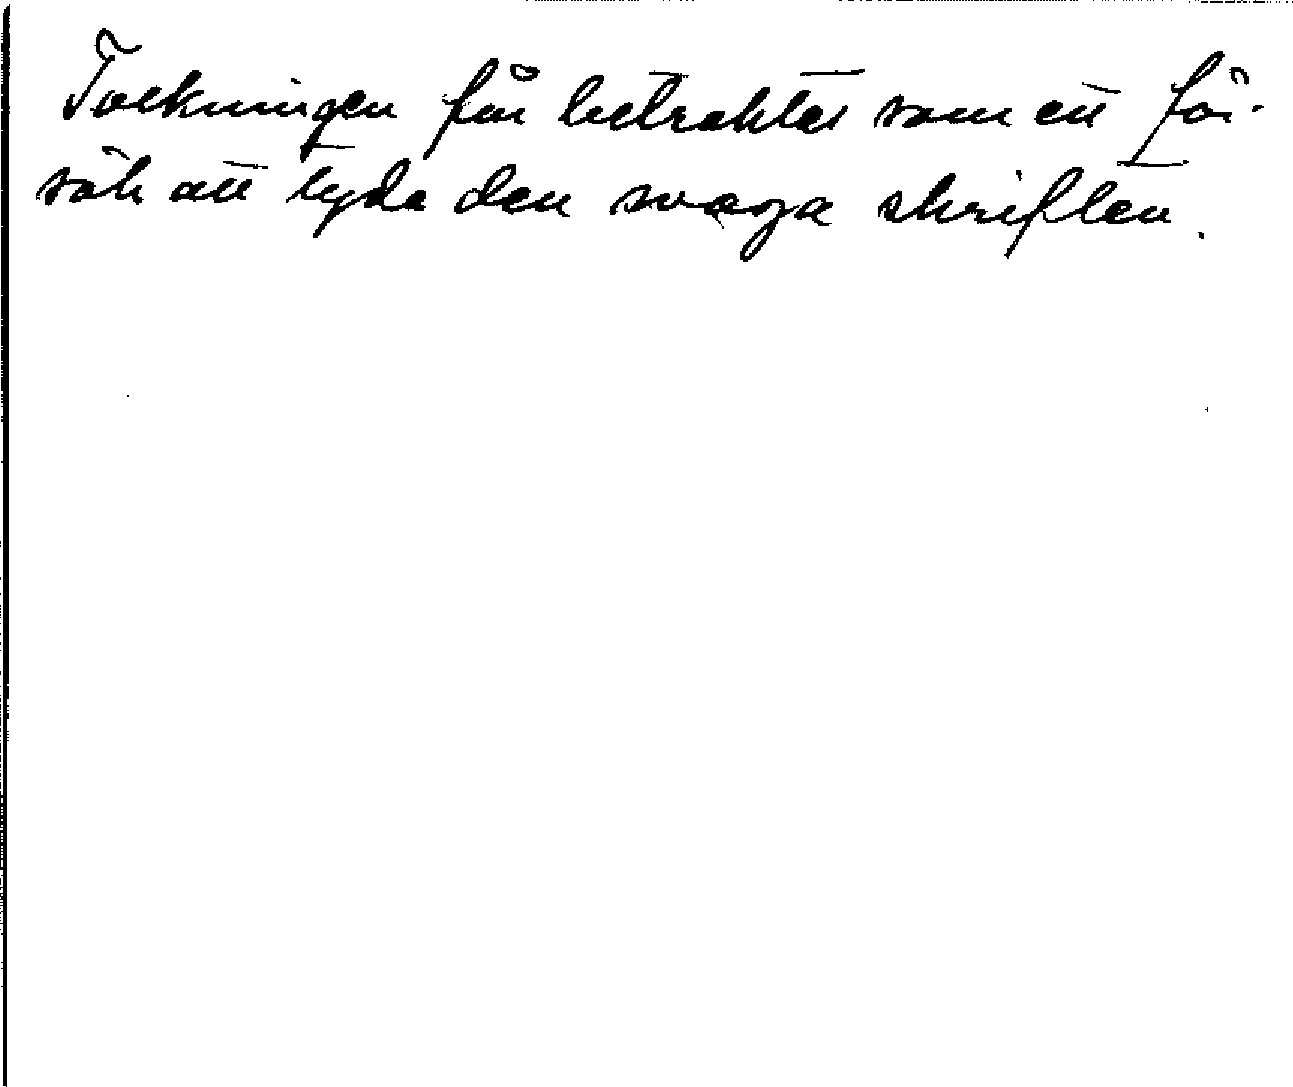 Tolkningen får betraktas som ett för-
sök att tyda den svaga skriften.